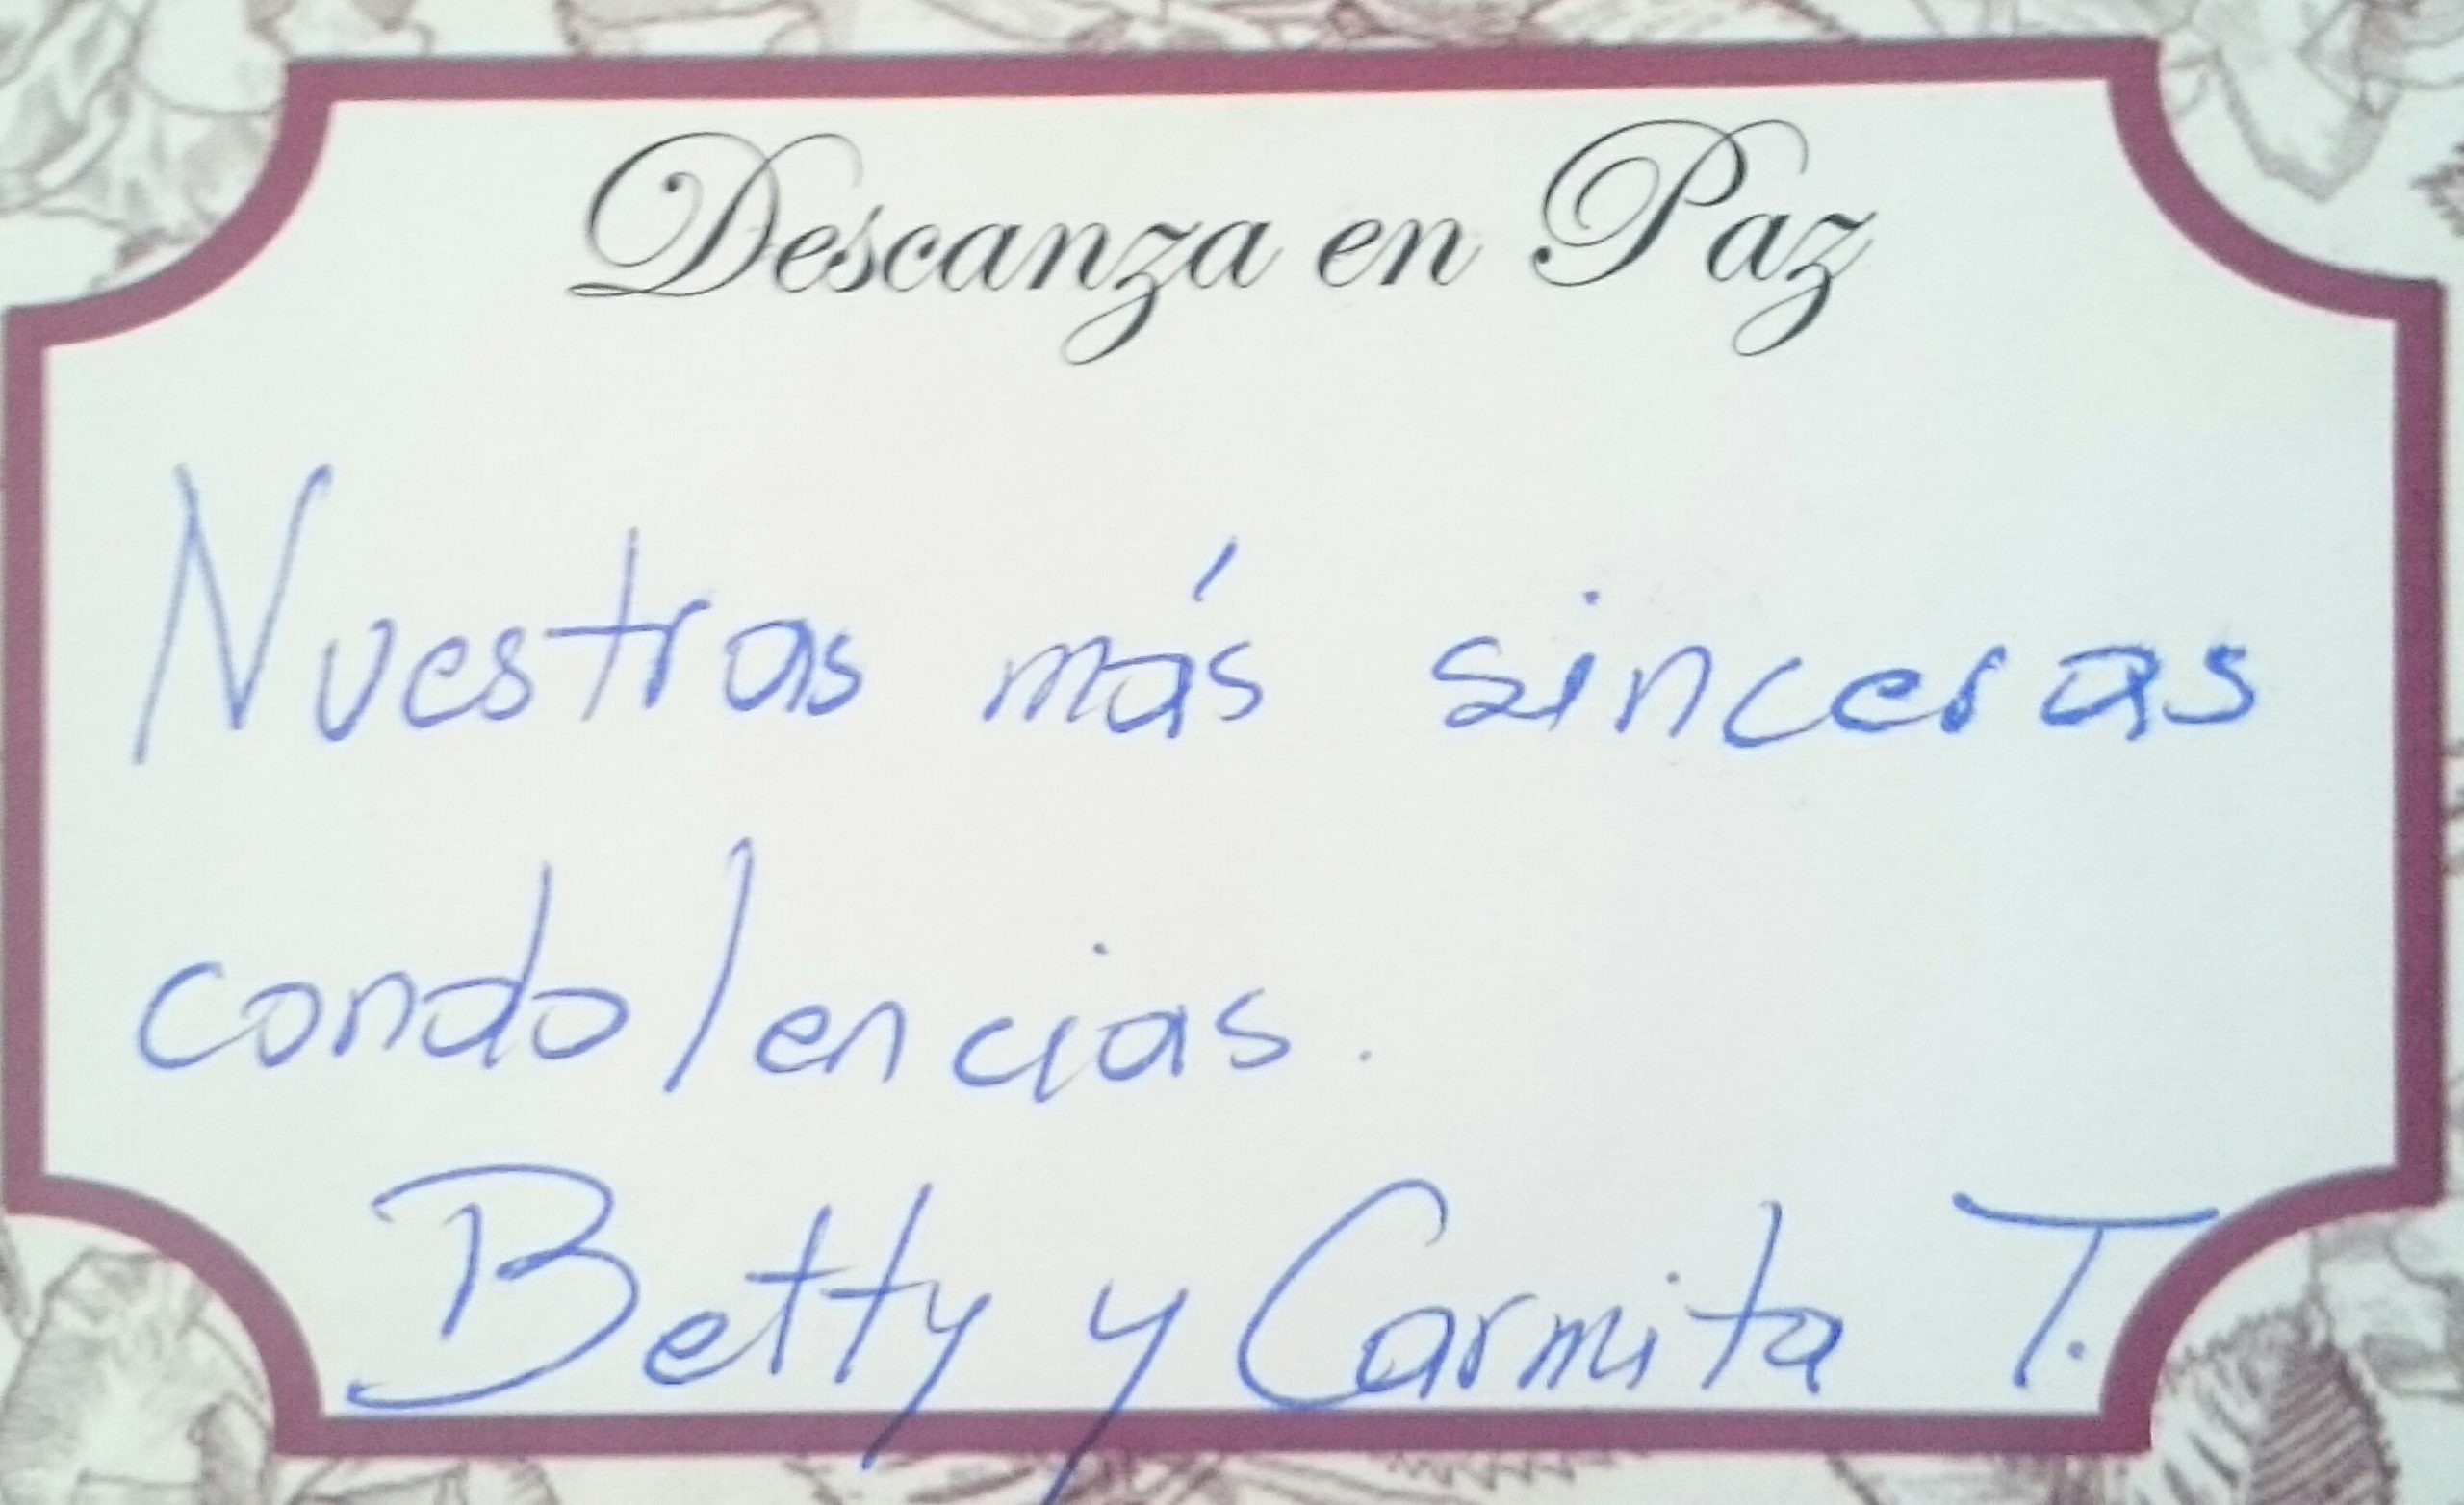 Descanza en Paz
Nuestras más sinceras
condolencias.
Betty y Carmita T.